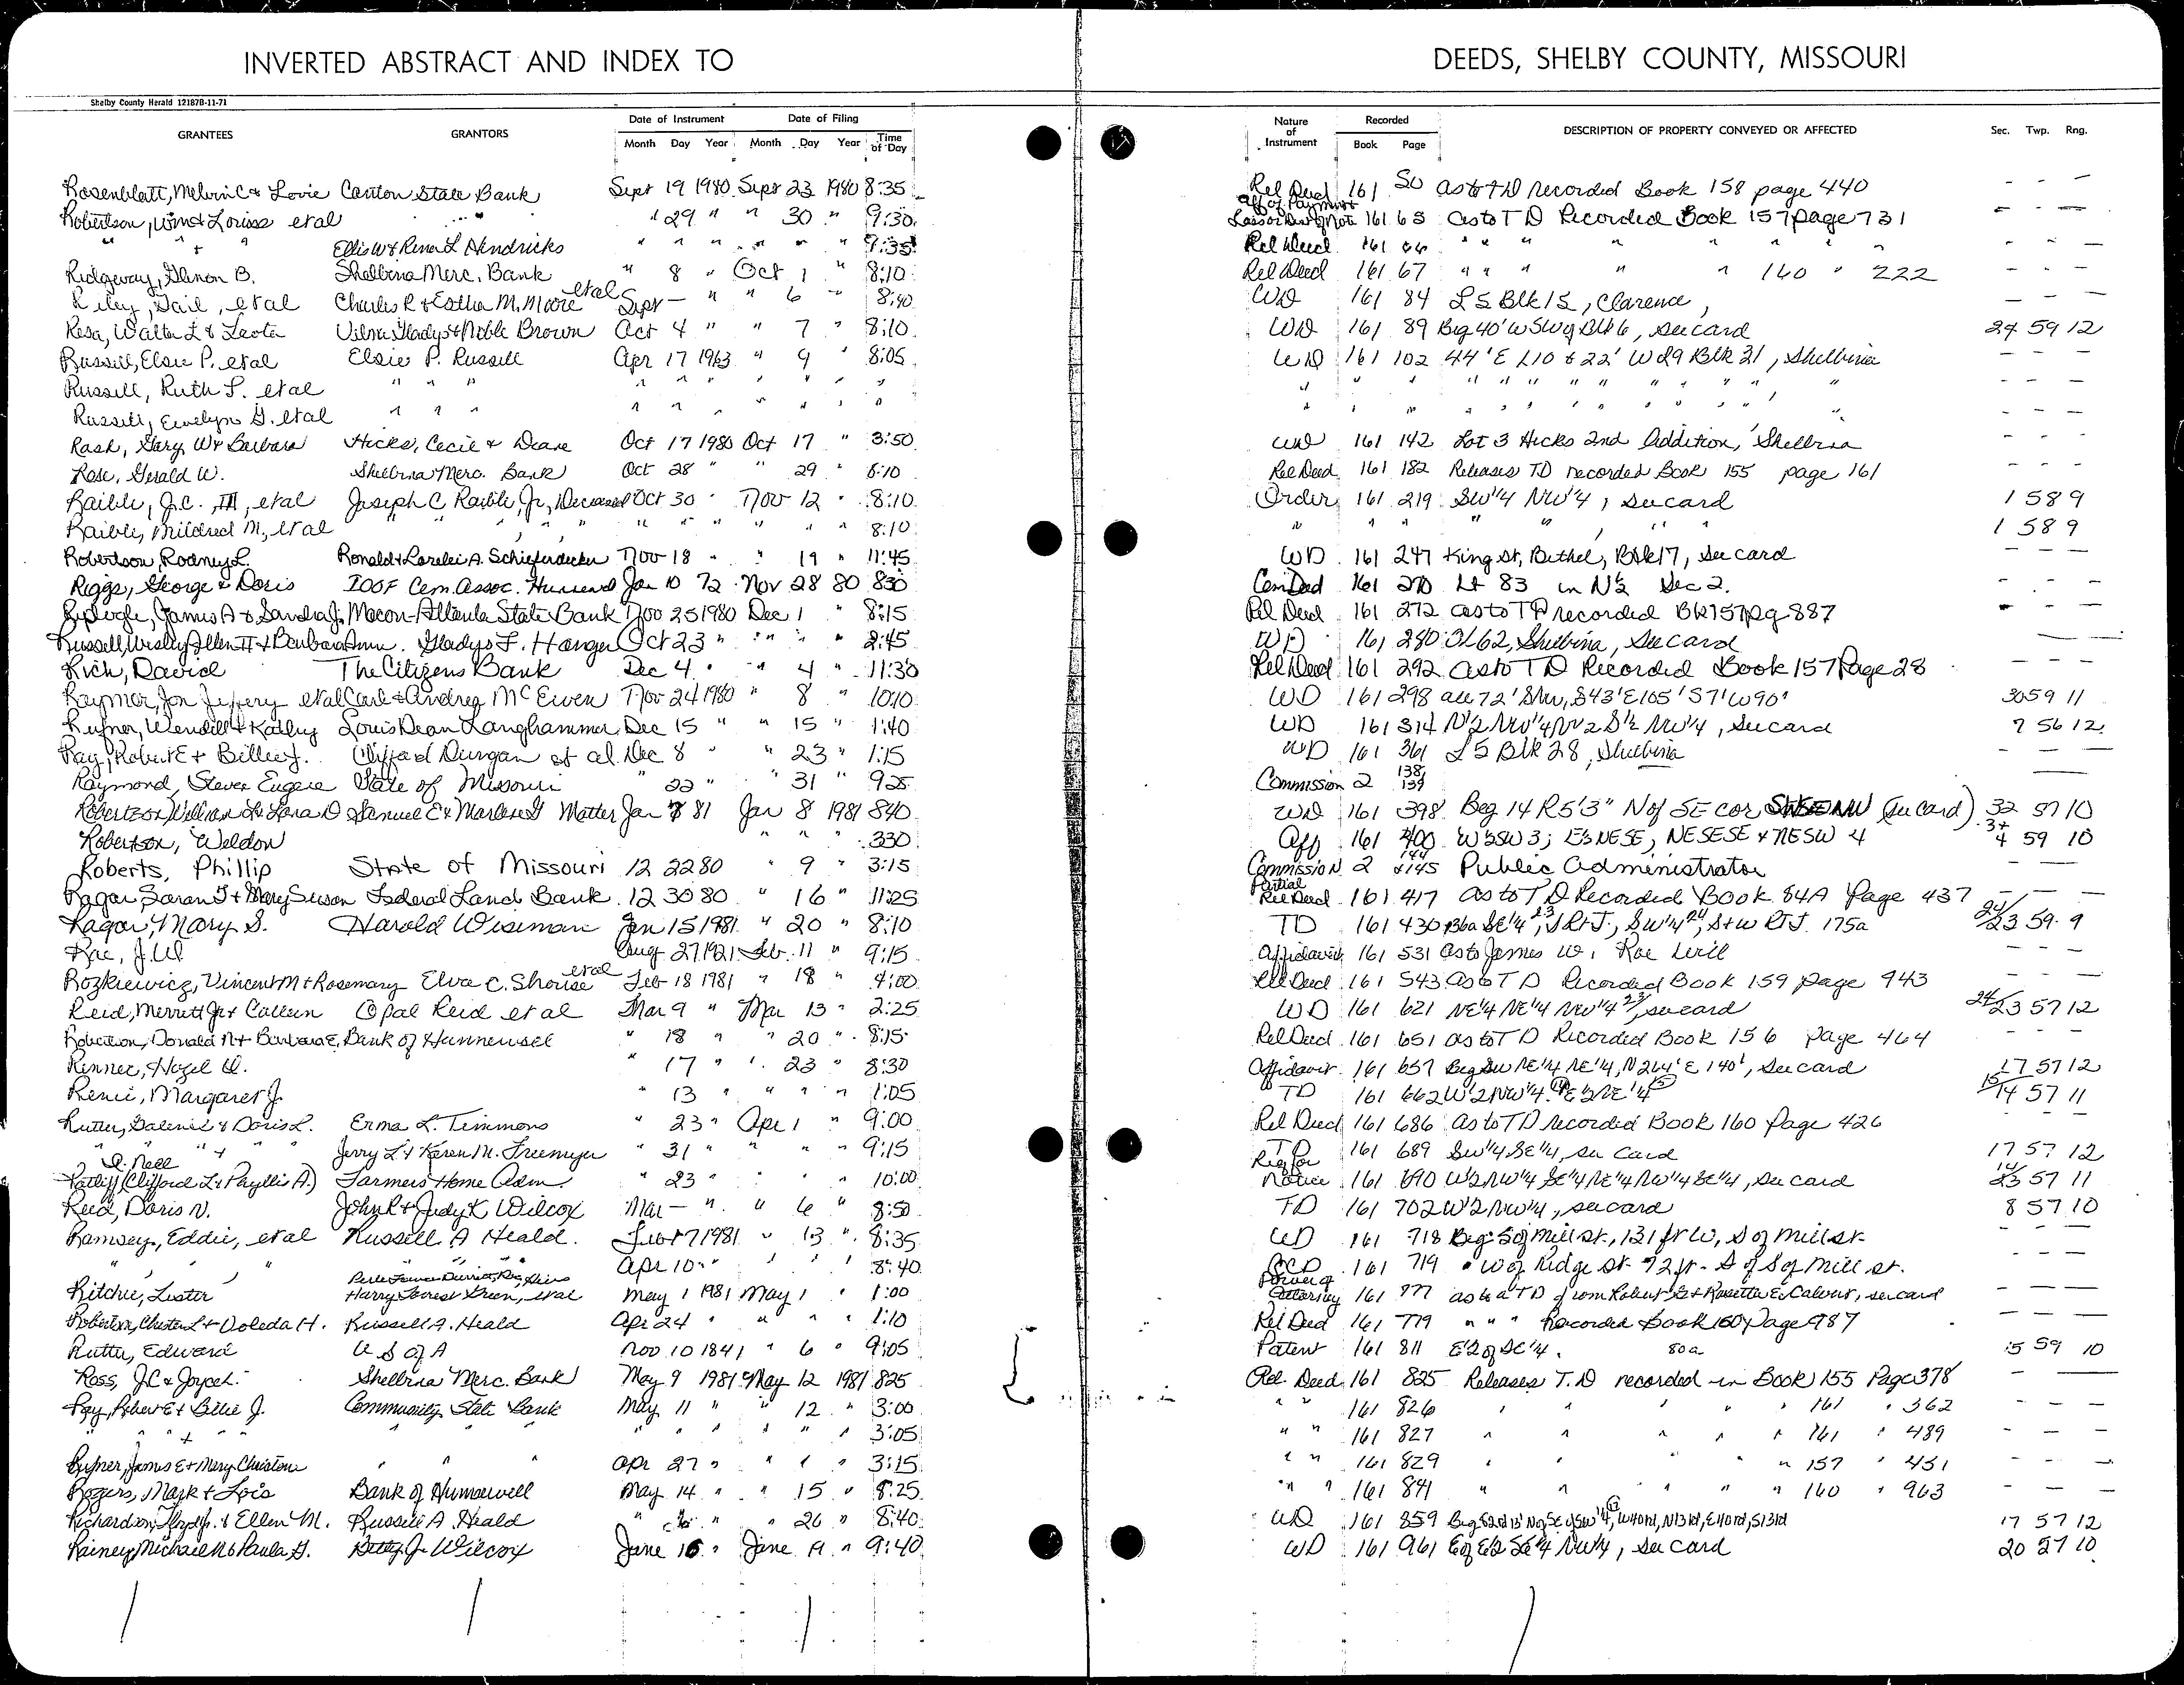 INVERTED ABSTRACT AND INDEX TO DEEDS, SHELBY COUNTY, MISSOURI
Shelby County Herald 12187B-11-71
GRANTEES GRANTORS Date of Instrument Date of Filing Nature of Instrument Recorded DESCRIPTION OF PROPERTY CONVEYED OR AFFECTED Sec. Twp. Rng.
Month Day Year Month Day Year Time of Day Book Page
Rosenblatt, Melvin C & Lovie Canton State Bank Sept 19 1980 Sept 23 1980 8:35 Rel Deed 161 50 as to TD recorded Book 158 page 440 - - -
Robertson, Wm & Louise etal " " " " 29 " " 30 " 9:30 Aff of Payment 161 65 as to TD Recorded Book 157 page 731 - - -
" + " Ellis W & Rena L Hendricks " " " " " " 9:35 Rel Deed 161 66 " " " " " " - - -
Ridgeway, Glenon B. Shelbina Merc. Bank " 8 " Oct 1 " 8:10 Rel Deed 161 67 " " " " " 160 " 222 - - -
Riley, Gail, etal Charles R & Estha M. Moore etal Sept — " " 6 " 8:40 WD 161 84 L5 Blk 15, Clarence, - - -
Resa, Walter L & Leota Vilna Gladys & Noble Brown Oct 4 " " 7 " 8:10 WD 161 89 Beg 40' W SW of Blk 6, see card 24 59 12
Russell, Elsie P. etal Elsie P. Russell Apr 17 1963 " 9 " 8:05 WD 161 102 44' E L10 & 22' W L9 Blk 21, Shelbina - - -
Russell, Ruth F. etal " " " " " " " " " " " " " " " " " " " " - - -
Russell, Evelyn G. etal " " " " " " " " " " " " " " " " " " " " - - -
Rash, Gary W & Barbara Hicks, Cecil & Deane Oct 17 1980 Oct 17 " 3:50 WD 161 142 Lot 3 Hicks 2nd Addition, Shelbina - - -
Rose, Gerald W. Shelbina Merc. Bank Oct 28 " " 29 " 8:10 Rel Deed 161 182 Releases TD recorded Book 155 page 161 - - -
Raible, J.C., III, etal Joseph C Raible, Jr, Deceased Oct 30 " Nov 12 " 8:10 Order 161 219 SW 1/4 NW 1/4, see card 1 58 9
Raible, Mildred M., etal " " " " " " " " " 8:10 " " " " " " " 1 58 9
Robertson, Rodney L. Ronald & Lorelei A. Schieferdecker Nov 18 " " 19 " 11:45 WD 161 247 King St, Bethel, Blk 17, see card - - -
Riggs, George & Doris IOOF Cem. Assoc. Hunnewell Jan 10 72 Nov 28 80 830 Cem Deed 161 270 Lt 83 in N½ Sec 2. - - -
Replogle, James A & Sandra J. Macon-Atlanta State Bank Nov 25 1980 Dec 1 " 8:15 Rel Deed 161 272 as to TD recorded BK 157 pg 887 - - -
Russell, Wesley Allen II & Barbara Ann Gladys F. Hanger Oct 23 " " " " 2:45 WD 161 280 OL 62, Shelbina, See card — —
Rich, David The Citizens Bank Dec 4 " " 4 " 11:30 Rel Deed 161 292 as to TD Recorded Book 157 Page 28 - - -
Raymer, Jon Jeffery etal Carl & Andrea McEwen Nov 24 1980 " 8 " 10:10 WD 161 298 all 72' S NW, S43' E105' S7' W90' 30 59 11
Rufner, Wendell & Kathy Louis Dean Langhammer Dec 15 " " 15 " 1:40 WD 161 314 N½ NW¼ N½ S½ NW¼, See card 7 56 12
Ray, Robert E + Billie J. Clifford Durgan et al Dec 8 " " 23 " 1:15 WD 161 361 L5 Blk 28, Shelbina - - -
Raymond, Steven Eugene State of Missouri " 22 " " 31 " 9:25 Commission 2 138/139 —
Robertson, William L & Lora D Samuel E & Marlene G Matter Jan 7 81 Jan 8 1981 840 WD 161 398 Beg 14 R 5'3" N of SE cor (see card) 32 57 10
Robertson, Weldon " " " 330 Aff 161 400 W½SW 3; E½NESE, NESESE & NESW 4 3+4 59 10
Roberts, Phillip State of Missouri 12 22 80 " 9 " 3:15 Commission 2 144 &145 Public Administrator — —
Ragar, Saran J & Mary Susan Federal Land Bank 12 30 80 " 16 " 11:25 Partial Rel Deed 161 417 as to TD Recorded Book 84A Page 437 - - -
Ragar, Mary S. Harold Wiseman Jan 15 1981 " 20 " 8:10 TD 161 430 SE¼ 23, SW¼ 24, S+W 175a 24/23 59 9
Rae, J.W Aug 27 1921 Feb. 11 " 9:15 Affidavit 161 531 as to James W. Rae Will - - -
Rozkiewicz, Vincent M & Rosemary Elva C. Shouse etal Feb 18 1981 " 18 " 4:00 Rel Deed 161 543 as to TD Recorded Book 159 page 943 - - -
Reid, Merritt Jr & Colleen Opal Reid et al Mar 9 " Mar 13 " 2:25 WD 161 621 NE¼ NE¼ NW¼ 23, see card 24/23 57 12
Robertson, Donald N & Barbara E. Bank of Hunnewell " 18 " " 20 " 8:15 Rel Deed 161 651 as to TD Recorded Book 156 page 464 - - -
Renner, Hazel " 17 " " 23 " 8:30 Affidavit 161 657 Beg SW NE¼ NE¼, N 264' E 140', see card 17 57 12
Renie, Margaret J. " 13 " " " " 1:05 TD 161 662 W½NW¼ 14 E½NE¼ 15 15/14 57 11
Rutter, Galenid & Doris L. Erma L. Timmons " 23 " Apr 1 " 9:00 Rel Deed 161 686 as to TD recorded Book 160 page 426 - - -
" " + " " Jerry L & Karen M. Freemyer " 31 " " " " 9:15 TD 161 689 SW¼ SE¼, see Card 17 57 12
Ratliff (Clifford L & Phyllis A.) Farmers Home Adm. " 23 " " " " 10:00 Req for Notice 161 690 W½NW¼ SE¼NE¼ NW¼SE¼, see card 14/23 57 11
Reed, Doris N. John R & Judy K Wilcox Mar — " " 6 " 8:50 TD 161 702 W½NW¼, see card 8 57 10
Ramsey, Eddie, etal Russell A Heald Feb 17 1981 " 13 " 8:35 WD 161 718 Beg S of Mill st., 131 ft W, S of Mill st. - - -
" " " " " Apr 10 " " " " 8:40 QCD 161 719 " W of Ridge st. 92 ft. S of S of Mill st. - - -
Ritchie, Lester Harry Forrest Green, etal May 1 1981 May 1 " 1:00 Power of Attorney 161 777 as to a TD from Robert G & Rosetta E Calvert, see card — — —
Robertson, Chester L & Voleda H. Russell A. Heald Apr 24 " " " " 1:10 Rel Deed 161 779 " " " Recorded Book 160 Page 987 - - -
Rutter, Edward U S of A Nov 10 1841 " 6 " 9:05 Patent 161 811 E½ of SE¼. 80 a 15 59 10
Ross, J.C & Joyce L. Shelbina Merc. Bank May 9 1981 May 12 1981 825 Rel. Deed 161 825 Releases T.D recorded in Book 155 Page 378 - —
Ray, Robert E & Billie J. Community State Bank May 11 " " 12 " 3:00 " " 161 826 " " " " " 161 " 362 - - -
" " + " " " " " " " " " " 3:05 " " 161 827 " " " " " 161 " 489 - - -
Rufner, James E & Mary Christine " " " Apr 27 " " " " 3:15 " " 161 829 " " " " 157 " 451 - - -
Rogers, Mark & Lois Bank of Hunnewell May 14 " " 15 " 8:25 " " 161 841 " " " " 160 " 963 - - -
Richardson, Lloyd Jr. & Ellen M. Russell A. Heald " " " 26 " 8:40 WD 161 859 W40rd, N13rd, E40rd, S13rd 17 57 12
Rainey, Michael N & Paula G. Betty J. Wilcox June 16 " June 19 " 9:40 WD 161 961 E of E½ SE¼ NW¼, see card 20 57 10